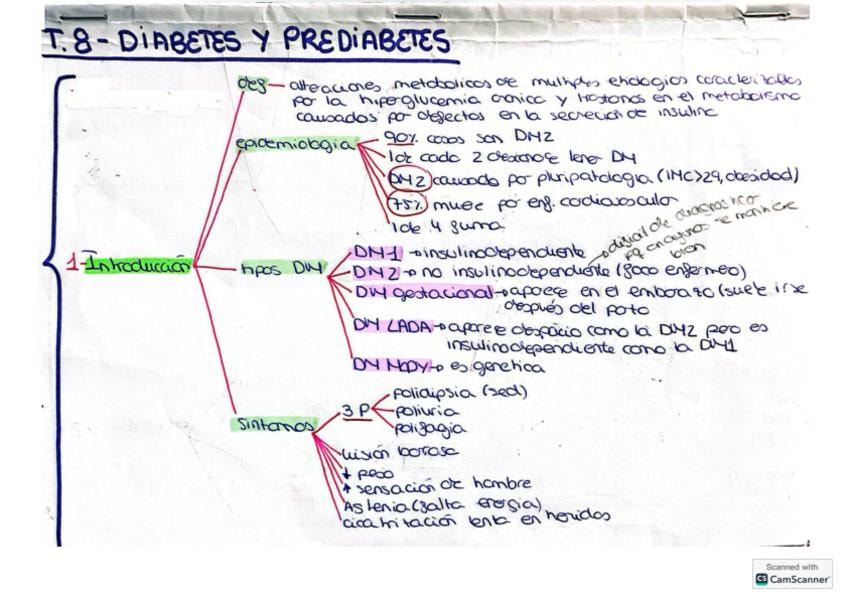 T.8- DIABETES Y PREDIABETES
def alteraciones metabolicas de multiples etiologias caracterizadas
por la hiperglucemia cronica y trastornos en el metabolismo
causados por defectos en la secrecion de insulina
epidemiologia
90% casos son DM2
1 de cada 2 desconoce tener DM
DM2 causada por pluripatologia (IMC>29, obesidad)
75% muere por enf. cardiovascular
1 de 4 fuma
1-Introducción
tipos DM
DM1 → insulinodependiente
dificil de diagnosticar
pq en ayunas se mantiene
bien
DM2 → no insulinodependiente (foco enfermeo)
DM gestacional → aparece en el embarazo (suele irse
después del parto
DM LADA → aparece despacio como la DM2 pero es
insulinodependiente como la DM1
DM MODY → es genetica
sintomas
3 P
polidipsia (sed)
poliuria
polifagia
visión borrosa
↓ peso
↑ sensación de hambre
Astenia (falta energia)
cicatrización lenta en heridas
Scanned with
CS CamScanner